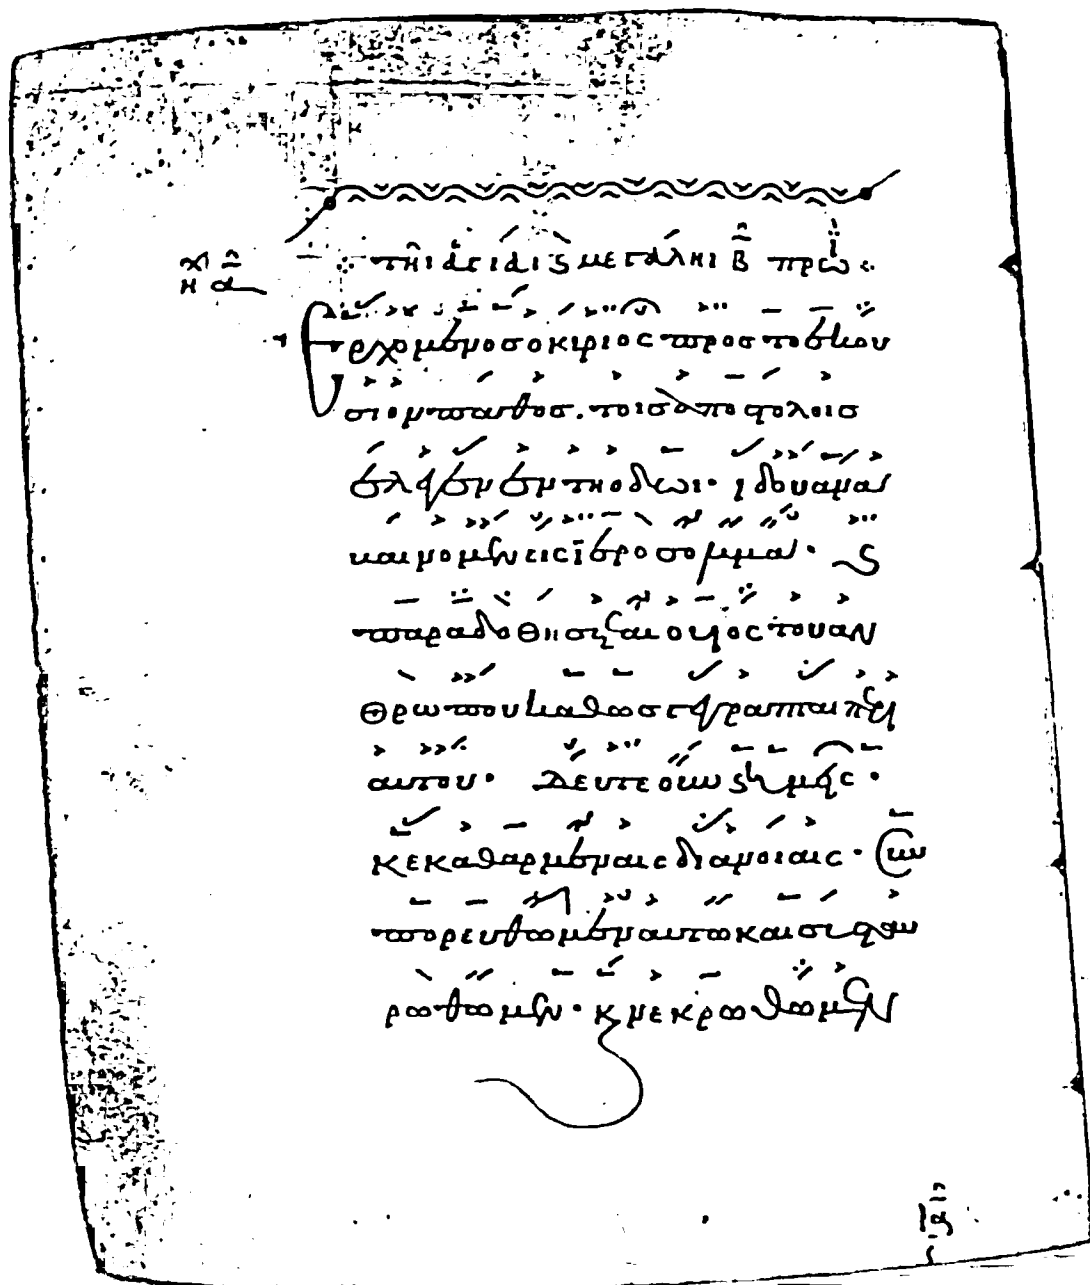 τῆι ἁγίαι ϛ μεγάληι β̄ πρωΐ
ηχ ᾱ
Ερχομενος ο κιριος προς το εκου
σιον παθος. τοις αποστολοις
ελεγεν εν τη οδωι· ιδου ανα
βαινομεν εις ιεροσολιμα· ϛ
παραδοθησεται ο υιος του αν
θρωπου καθως γεγραπται περι
αυτου· Δευτε ουν ϛ ημεις·
κεκαθαρμεναις διανοιαις· συν
πορευθωμεν αυτω και συσταυ
ρωθωμεν· κ νεκρωθωμεν